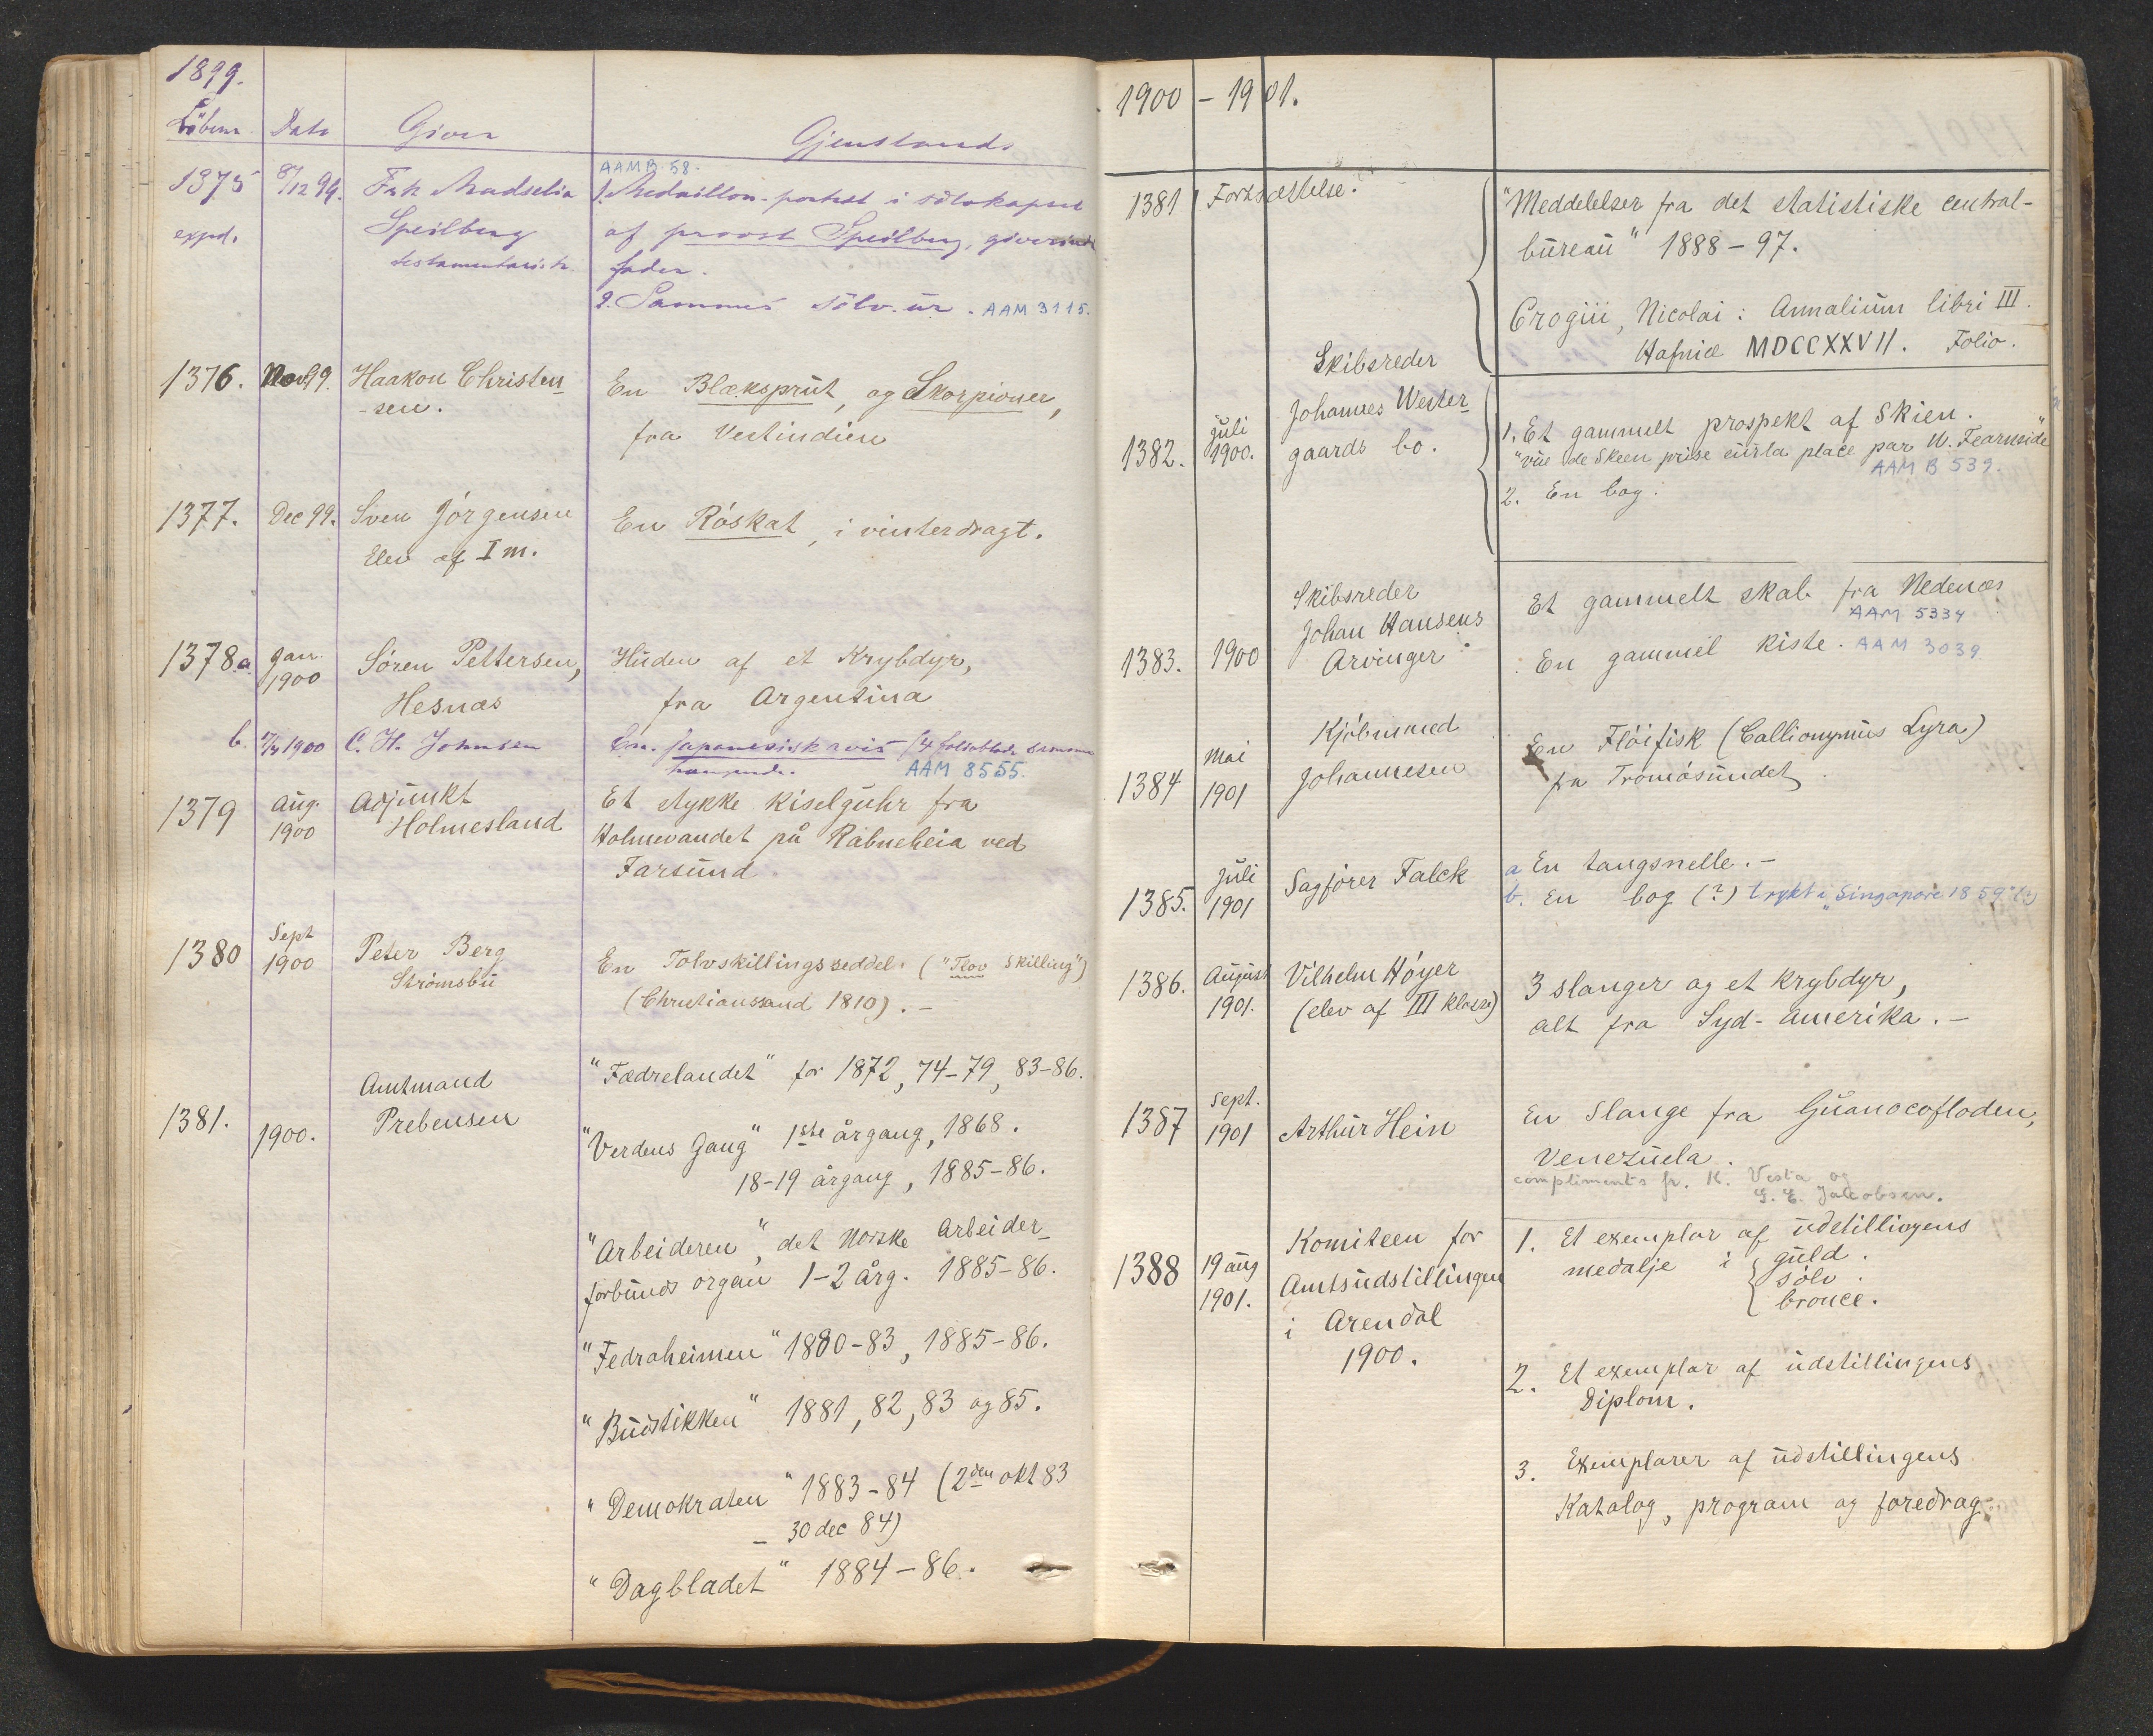 1899.
Löbenr. Dato Giver Gjenstand
AAM B. 58.
1375 8/12 99. Frk. Madselia 1. Medaillon-portræt i sölvkapsel
expd. Speilberg af provst Speilberg, giverindes
testamentarisk. fader.
2. Sammes sölv-ur. AAM 3115.
1376. Nov 99. Haakon Christen- En Blæksprut, og Skorpioner,
-sen. fra Vestindien
1377. Dec 99. Sven Jörgensen En Röskat, i vinterdragt.
Elev af I m.
1378.a. Jan. 1900 Sören Pettersen, Huden af et Krybdyr,
Hesnæs fra Argentina
b. 1900 C. H. Johnsen En japanesisk avis (4 helblade sammen
hængende. AAM 8555.
1379 Aug. 1900 Adjunkt Et stykke Kiselguhr fra
Holmesland Holmevandet på Rabneheia ved
Farsund.
1380 Sept 1900 Peter Berg En Tolvskillingsseddel. ("Tlov Skilling")
Strömsbu (Christianssand 1810). –
"Fædrelandet" for 1872, 74-79, 83-86.
1381. 1900. Amtmand
Prebensen
"Verdens Gang" 1ste årgang, 1868.
18-19 årgang, 1885-86.
"Arbeideren", det Norske Arbeider-
forbunds organ 1-2 årg. 1885-86.
"Fedraheimen" 1880-83, 1885-86.
"Budstikken" 1881, 82, 83 og 85.
"Demokraten" 1883-84 (2den okt 83
– 30 dec 84)
"Dagbladet" 1884-86.
1900 – 1901.
1381 Fortsættelse. "Meddelelser fra det statistiske central-
büreau" 1888-97.
Crogiii, Nicolai: Annalium libri III.
Hafniæ MDCCXXVII. Folio.
1382. Juli 1900. Skibsreder
Johannes Wester-
gaards bo.
1. Et gammelt prospekt af Skien.
"vüe de Skeen prise sur la place par W. Fearnside"
AAM B 539.
2. En bog.
1383. 1900 Skibsreder
Johan Hansens
Arvinger
Et gammelt skab fra Nedenæs
AAM 5334
En gammel kiste. AAM 3039.
1384 Mai 1901 Kjöbmand
Johannesen
En Flöifisk (Callionymus Lyra)
fra Tromösundet
1385. Juli 1901 Sagförer Falck a En tangsnelle. –
b. En bog (?) trykt i "Singapore 1859" (?)
1386. August 1901. Vilhelm Höyer 3 slanger og et krybdyr,
(elev af III klasse) alt fra Syd-Amerika. –
1387 Sept. 1901 Arthur Hein En Slange fra Guanocofloden,
Venezuela.
compliments fr. K. Vesta og
G. E. Jacobsen.
1388 19 aug 1901. Komiteen for
Amtsudstillingen
i Arendal
1900.
1. Et exemplar af udstillingens
medalje i guld.
sölv.
bronce.
2. Et exemplar af udstillingens
Diplom.
3. Exemplarer af udstillingens
Katalog, program og foredrag.